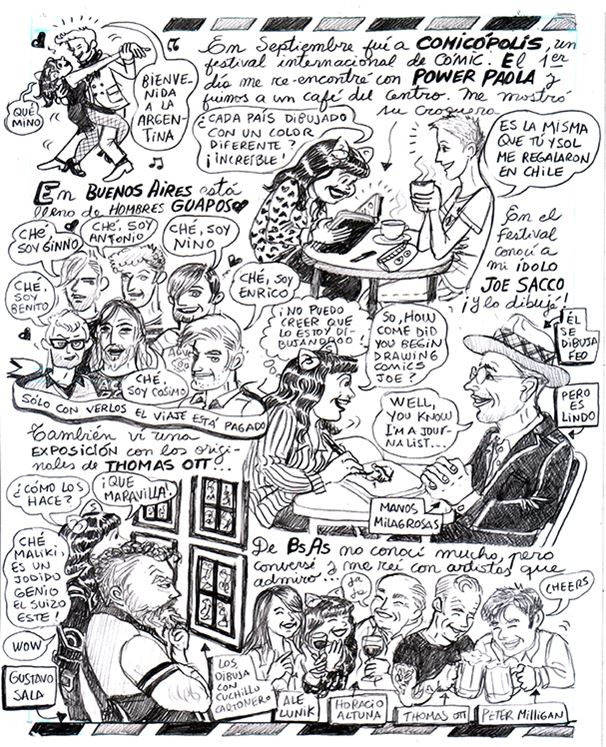 En Septiembre fuí a COMICÓPOLIS, un
festival internacional de CÓMIC. El 1er
día me re-encontré con POWER PAOLA y
fuimos a un café del centro. Me mostró
su croquera
QUÉ
MINO
BIENVE-
NIDA
A LA
ARGEN-
TINA
¿CADA PAÍS DIBUJADO
CON UN COLOR
DIFERENTE?
¡INCREÍBLE!
ES LA MISMA
QUE TÚ Y SOL
ME REGALARON
EN CHILE
En BUENOS AIRES está
lleno de HOMBRES GUAPOS
CHÉ,
SOY GINNO
CHÉ, SOY
ANTONIO
CHÉ, SOY
NINO
CHÉ,
SOY
BENITO
CHÉ, SOY
ENRICO
CHÉ,
SOY COSIMO
SÓLO CON VERLOS EL VIAJE ESTÁ PAGADO
En el
festival
conocí a
mi IDOLO
JOE SACCO
¡y lo dibujé!
¡NO PUEDO
CREER QUE
LO ESTOY DI-
BUJANDOOO
SO, HOW
COME DID
YOU BEGIN
DRAWING
COMICS
JOE?
WELL,
YOU KNOW
I'M A JOUR-
NALIST...
ÉL
SE
DIBUJA
FEO
PERO
ES
LINDO
MANOS
MILAGROSAS
También vi una
EXPOSICIÓN con los origi-
nales de THOMAS OTT...
¿CÓMO LOS
HACE?
¡QUE
MARAVILLA!
CHÉ
MALIKI,
ES UN
JODIDO
GENIO
EL SUIZO
ESTE!
WOW
GUSTAVO
SALA
LOS
DIBUJA
CON
CUCHILLO
CARTONERO
De BsAs no conocí mucho, pero
conversé y me reí con artistas que
admiro...
JA
JA
CHEERS
ALE
LUNIK
HORACIO
ALTUNA
THOMAS OTT
PETER MILLIGAN